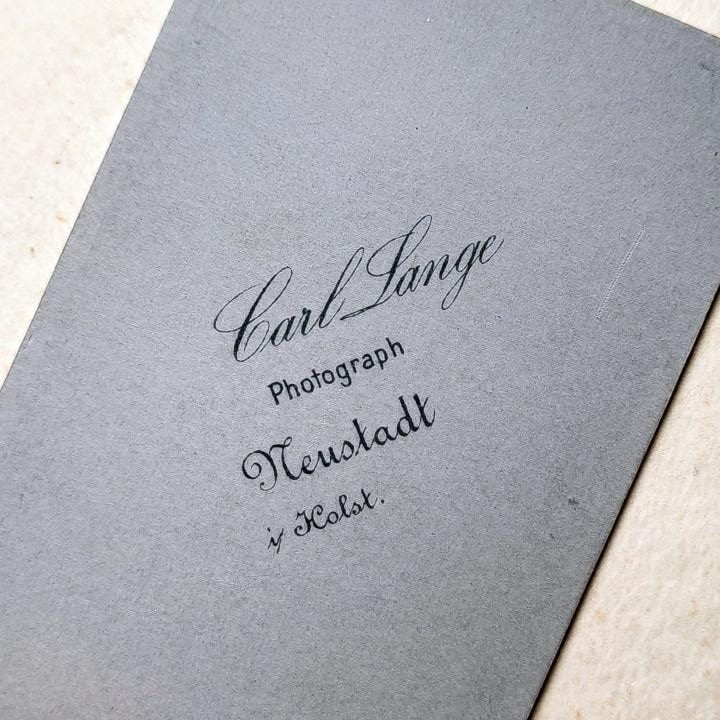 Carl Lange
Photograph
Neustadt
i/ Holst.